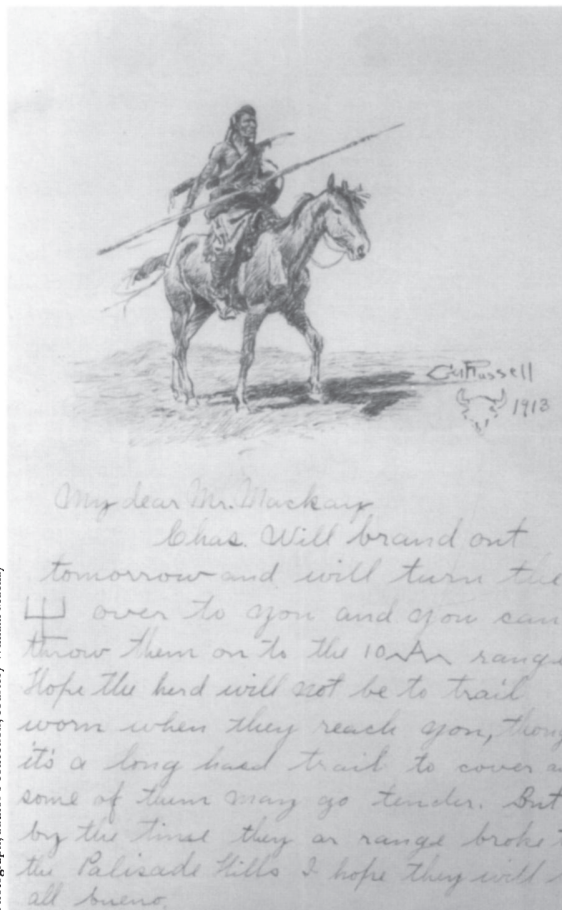 CM Russell
1913
My dear Mr. Mackay
Chas. Will brand out
tomorrow and will turn the
over to you and you can
throw them on to the 10 range
Hope the herd will not be to trail
worn when they reach you, thoug
it's a long hard trail to cover a
some of them may go tender. But
by the time they ar range broke t
the Palisade Hills I hope they will
all bueno.